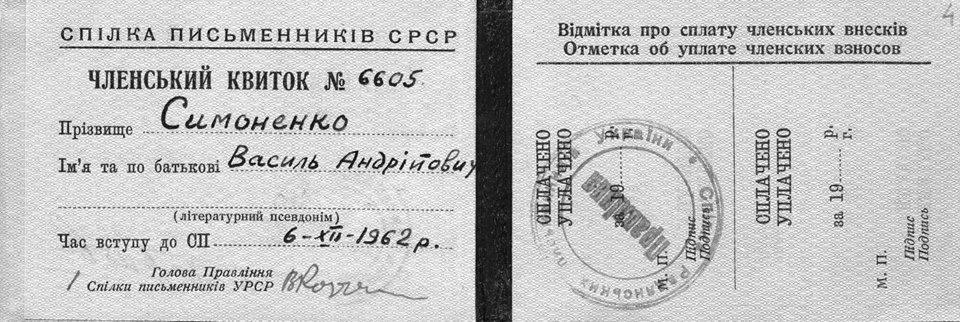 СПІЛКА ПИСЬМЕННИКІВ СРСР
ЧЛЕНСЬКИЙ КВИТОК № 6605.
Прізвище Симоненко
Ім'я та по батькові Василь Андрійович
(літературний псевдонім)
Час вступу до СП 6-XII-1962 р.
Голова Правління
Спілки письменників УРСР
4
Відмітка про сплату членських внесків
Отметка об уплате членских взносов
СПЛАЧЕНО
УПЛАЧЕНО
за 19 р.
г.
М. П.
Підпис
Подпись
СПЛАЧЕНО
УПЛАЧЕНО
за 19 р.
г.
М. П.
Підпис
Подпись
України Спілка Радянських
Правління